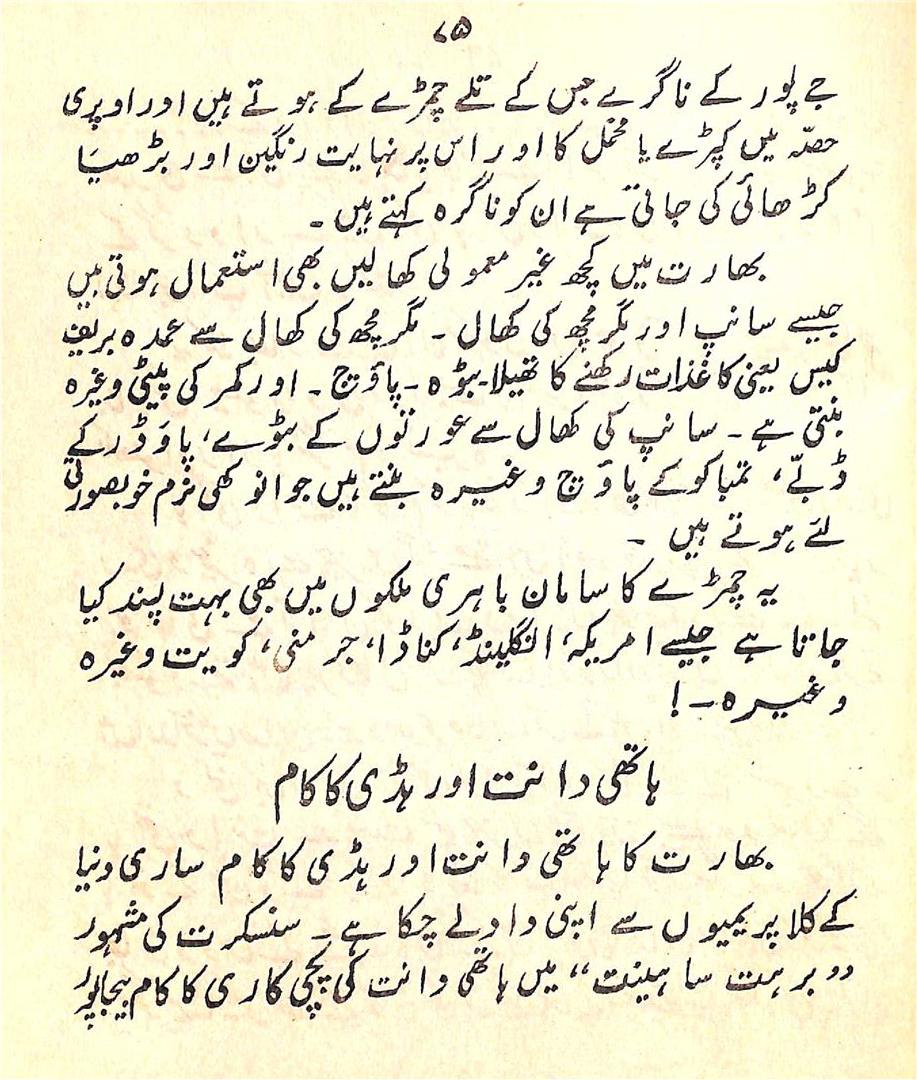 ۷۵
جے پور کے ناگرے جس کے تلے چمڑے کے ہوتے ہیں اور اوپری
حصّہ میں کپڑے یا مخمل کا اور اس پر نہایت رنگین اور بڑھیا
کڑھائی کی جاتی ہے ان کو ناگرہ کہتے ہیں ۔
بھارت میں کچھ غیر معمولی کھالیں بھی استعمال ہوتی ہیں
جیسے سانپ اور مگرمچھ کی کھال ۔ مگرمچھ کی کھال سے عمدہ بریف
کیس یعنی کاغذات رکھنے کا تھیلا۔ بٹوہ ۔ پاؤچ ۔ اور کمر کی پیٹی وغیرہ
بنتی ہے ۔ سانپ کی کھال سے عورتوں کے بٹوے، پاؤڈر کے
ڈبّے، تمباکو کے پاؤچ وغیرہ بنتے ہیں جو انوکھی نرم خوبصورتی
لئے ہوتے ہیں ۔
یہ چمڑے کا سامان باہری ملکوں میں بھی بہت پسند کیا
جاتا ہے جیسے امریکہ، انگلینڈ، کناڈا، جرمنی، کویت وغیرہ
وغیرہ ۔!
ہاتھی دانت اور ہڈی کا کام
بھارت کا ہاتھی دانت اور ہڈی کا کام ساری دنیا
کے کلا پریمیوں سے اپنی داد لے چکا ہے ۔ سنسکرت کی مشہور
"برہت ساہینت" میں ہاتھی دانت کی پچی کاری کا کام بیجاپور